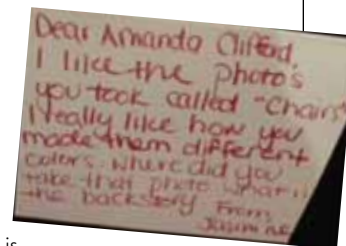 Dear Amanda Clifford,
I like the photo's
you took called "Chairs"
I really like how you
made them different
colors. Where did you
take that photo what is
the backstory From
Jasmine
is